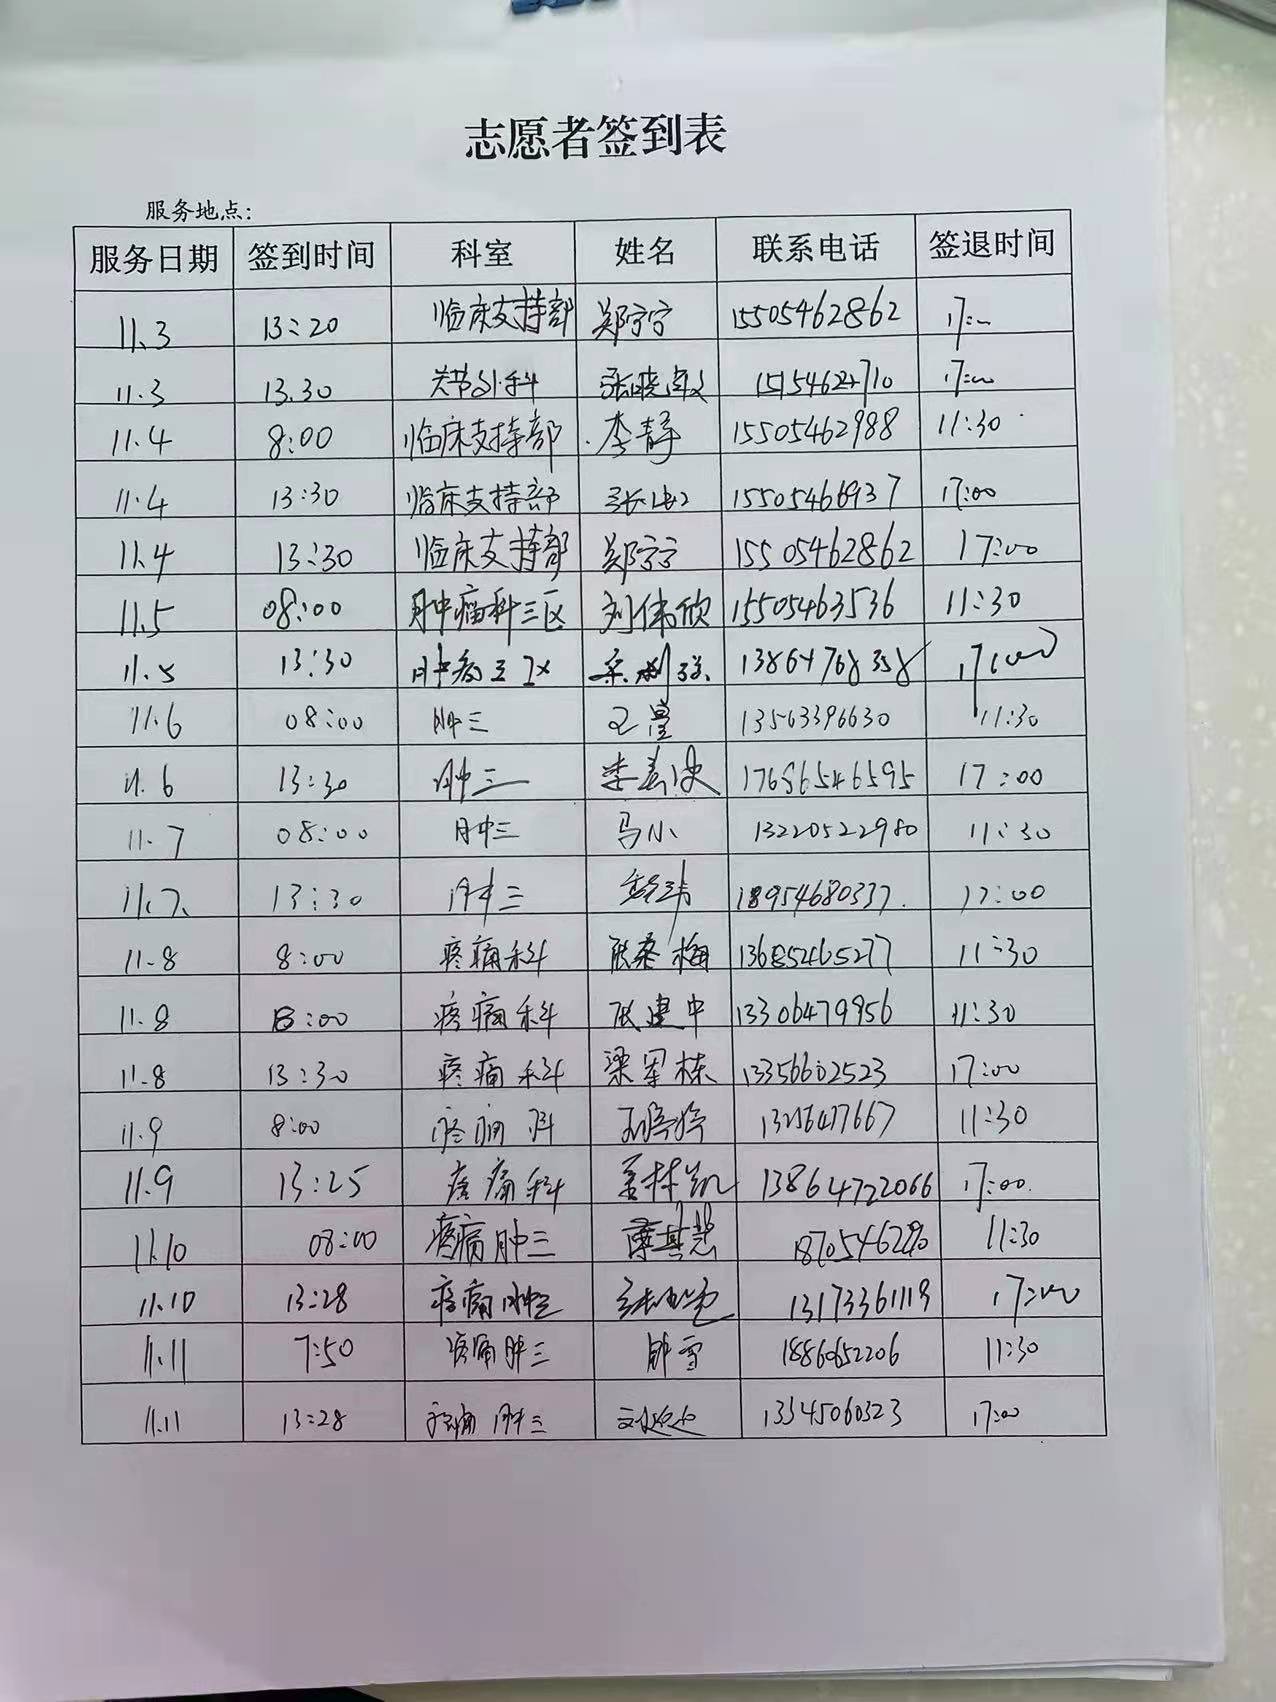 志愿者签到表
服务地点:
服务日期 签到时间 科室 姓名 联系电话 签退时间
11.3 13:20 临床支持部 郑宁宁 15505462862
11.3 13.30 关节外科 张晓敏 17:00
11.4 8:00 临床支持部 李静 15505462988 11:30
11.4 13:30 临床支持部 15505466937 17:00
11.4 13:30 临床支持部 郑宁宁 15505462862 17:00
11.5 08:00 肿瘤科三区 刘伟欣 15505463536 11:30
11.5 13:30 13864768358 17:00
11.6 08:00 肿三 13563396630 11:30
11.6 13:30 肿三 17686546595 17:00
11.7 08:00 肿三 马小 13220522980 11:30
11.7. 13:30 肿三 18954680337. 17:00
11.8 8:00 疼痛科 13685465277 11:30
11.8 8:00 疼痛科 张建中 13306479956 11:30
11.8 13:30 疼痛科 梁军栋 13356602523 17:00
11.9 8:00 疼痛科 11:30
11.9 13:25 疼痛科 13864722066 17:00.
11.10 08:00 疼痛肿三 11:30
11.10 13:28 疼痛肿三 13173361119 17:00
11.11 7:50 疼痛肿三 18860652206 11:30
11.11 13:28 疼痛肿三 13345060323 17:00